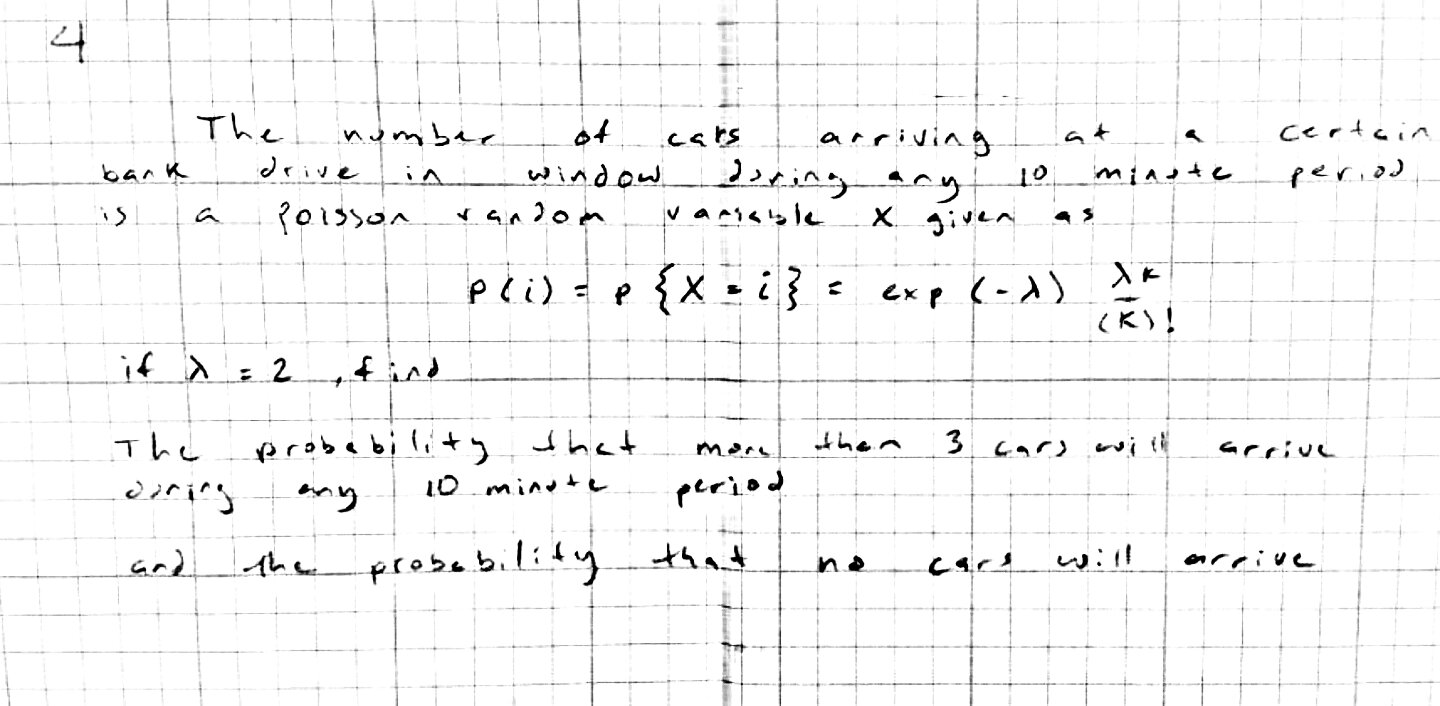 4
The number of cars arriving at a certain
bank drive in window during any 10 minute period
is a Poisson random variable X given as
p(i) = p {X = i} = exp (-λ) λK/(K)!
if λ = 2 , find
The probability that more than 3 cars will arrive
during any 10 minute period
and the probability that no cars will arrive